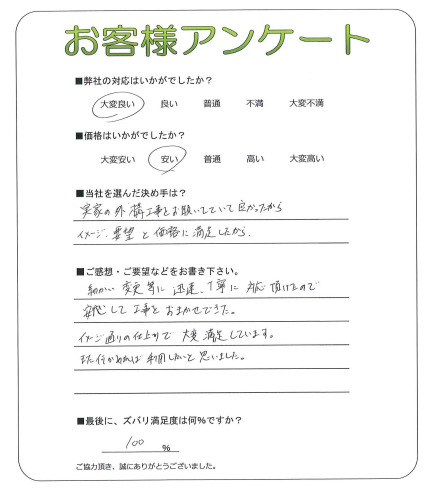 お客様アンケート
■弊社の対応はいかがでしたか？
大変良い 良い 普通 不満 大変不満
■価格はいかがでしたか？
大変安い 安い 普通 高い 大変高い
■当社を選んだ決め手は？
実家の外構工事をお願いしていて良かったから
イメージ、要望と価格に満足したから。
■ご感想・ご要望などをお書き下さい。
細かい変更等に迅速、丁寧に対応頂けたので
安心して工事をおまかせできた。
イメージ通りの仕上りで大変満足しています。
また何かあれば利用したいと思いました。
■最後に、ズバリ満足度は何%ですか？
100 %
ご協力頂き、誠にありがとうございました。